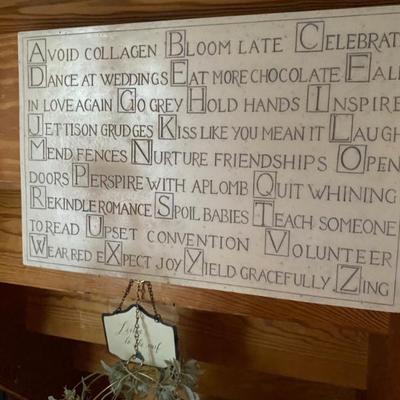 AVOID COLLAGEN BLOOM LATE CELEBRAT
DANCE AT WEDDINGS EAT MORE CHOCOLATE FALL
IN LOVE AGAIN GO GREY HOLD HANDS INSPIRE
JETTISON GRUDGES KISS LIKE YOU MEAN IT LAUGH
MEND FENCES NURTURE FRIENDSHIPS OPEN
DOORS PERSPIRE WITH APLOMB QUIT WHINING
REKINDLE ROMANCE SPOIL BABIES TEACH SOMEONE
TO READ UPSET CONVENTION VOLUNTEER
WEAR RED EXPECT JOY YIELD GRACEFULLY ZING